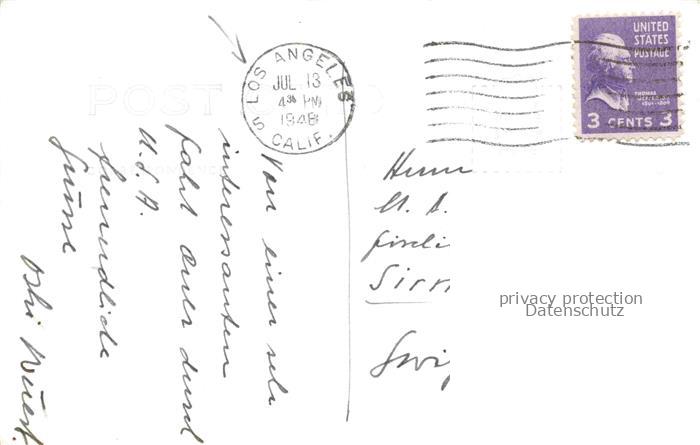 LOS ANGELES
5
CALIF.
JUL 13
4 30 PM
1948
UNITED
STATES
POSTAGE
THOMAS
JEFFERSON
1801-1809
3 CENTS 3
POST
Von einer sehr
interessanten
Fahrt quer durch
U.S.A.
freundliche
Grüsse
Herrn
Sirn
privacy protection
Datenschutz